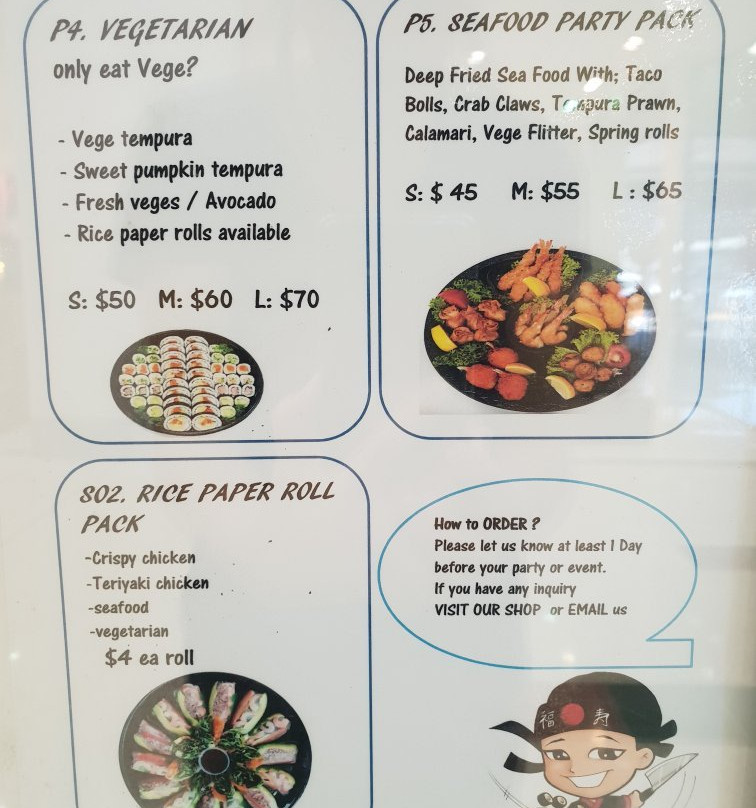 P4. VEGETARIAN
only eat Vege?
- Vege tempura
- Sweet pumpkin tempura
- Fresh veges / Avocado
- Rice paper rolls available
S: $50 M: $60 L: $70
P5. SEAFOOD PARTY PACK
Deep Fried Sea Food With; Taco
Bolls, Crab Claws, Tempura Prawn,
Calamari, Vege Flitter, Spring rolls
S: $ 45 M: $55 L : $65
SO2. RICE PAPER ROLL
PACK
-Crispy chicken
-Teriyaki chicken
-seafood
-vegetarian
$4 ea roll
How to ORDER ?
Please let us know at least 1 Day
before your party or event.
If you have any inquiry
VISIT OUR SHOP or EMAIL us
福 寿